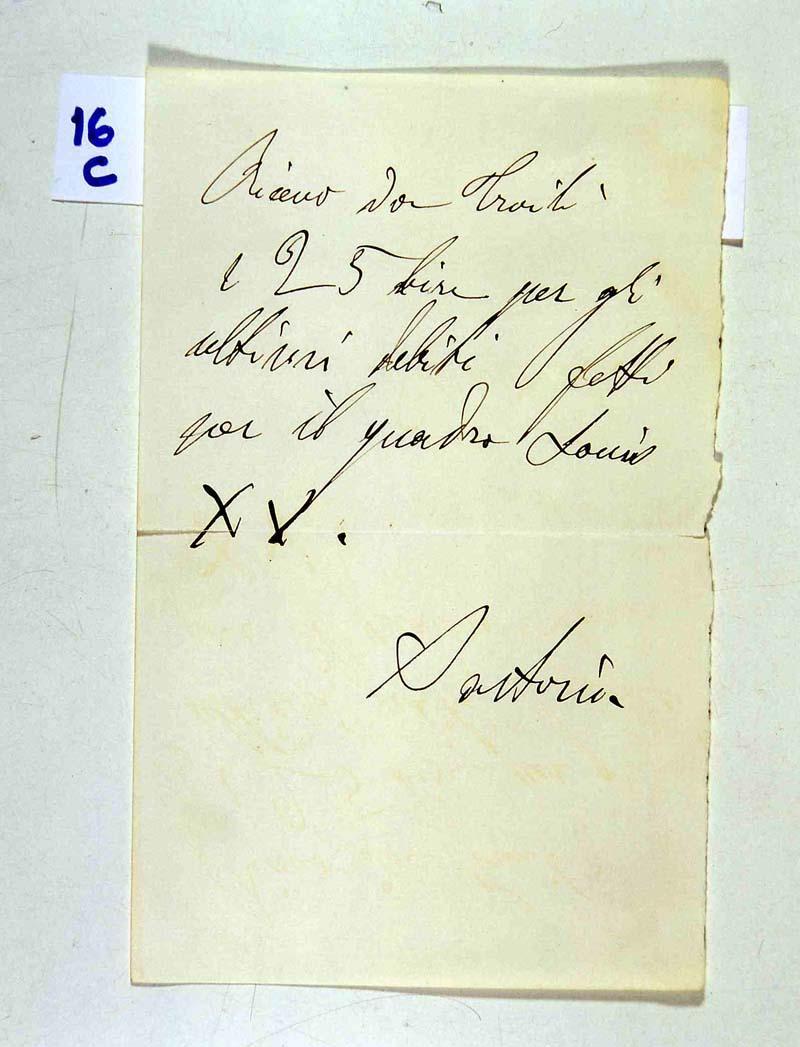 16
C
Ricevo da Troili
£ 25 lire per gli
ultimi debiti fatti
per il quadro Louis
XV.
Sartorio.